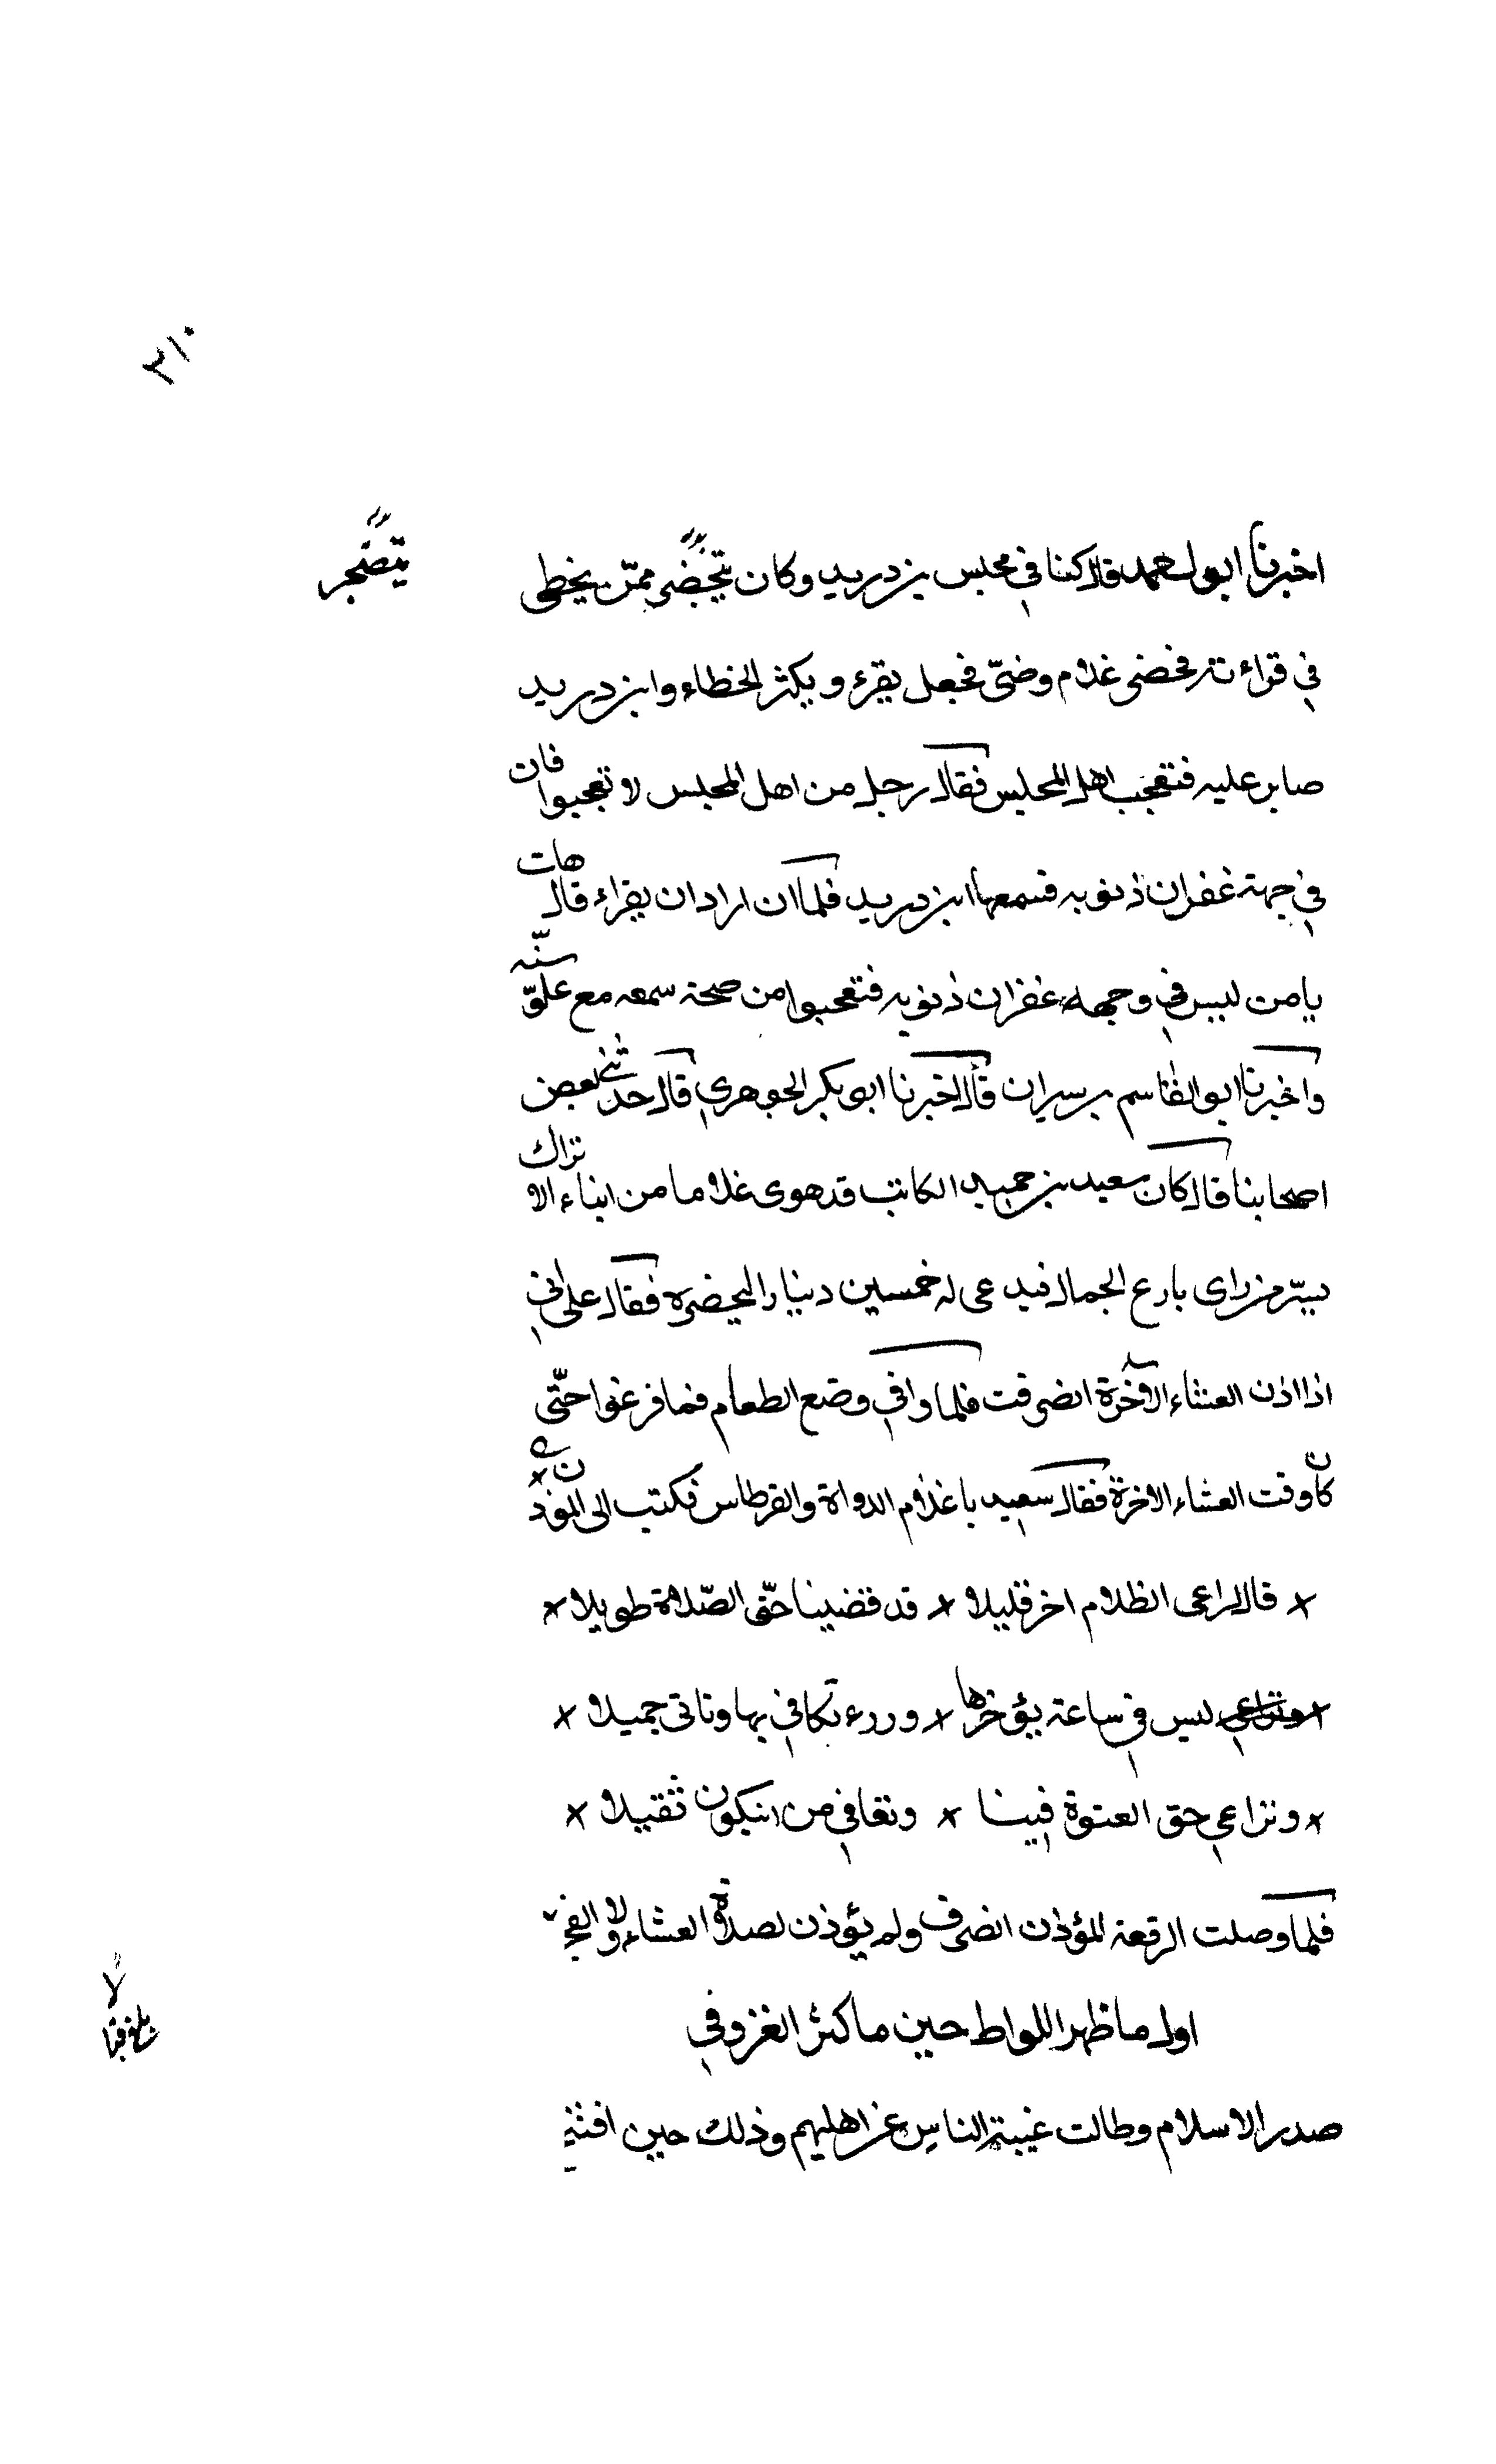 ٢١٠
اخبرنا ابو احمد قال كنا في مجلس بن دريد وكان يتحضى ممن يخطى
يتضجر
في قراءته فحضى غلام وضىّ فجعل يقرء ويكثر الخطاء وابن دريد
صابر عليه فتعجب اهل المجلس فقال رجل من اهل المجلس لا تعجبوا فان
في جهته غفران ذنوبه فسمعها ابن دريد فلما ان اراد ان يقراء قال هات
يا من ليس في وجهه غفران ذنوبه فتعجبوا من صحة سمعه مع علوّ سنّه
واخبرنا ابو القاسم بن سيران قال اخبرنا ابو بكر الجوهري قال حدثني بعض
اصحابنا قال كان سعيد بن حميد الكاتب قد هوى غلاما من ابناء الاتراك
بسرّ من راى بارع الجمال فيدعى له خمسين دينارا ليحضره فقال على اني
اذا اذن العشاء الاخرة انصرفت فلما وافى وضع الطعام فما فرغوا حتّى
كان وقت العشاء الاخرة فقال سعيد يا غلام الدواة والقرطاس فكتب الى الموذن
× قال لداعى الظلام اخر قليلا × قد قضينا حقّ الصّلاة طويلا ×
× ليس في ساعة يؤخرها × وزر تكافي بها وتاتى جميلا ×
× وتراعي حق الفتوة فينا × وتعافي من ان يكون ثقيلا ×
فلما وصلت الرقعة المؤذن انصرف ولم يؤذن لصلاة العشاء ولا الفجر
اول ما ظهر اللواط حين ما كثر الغزو في
صدر الاسلام وطالت غيبة الناس عن اهليهم وذلك حين افتتح